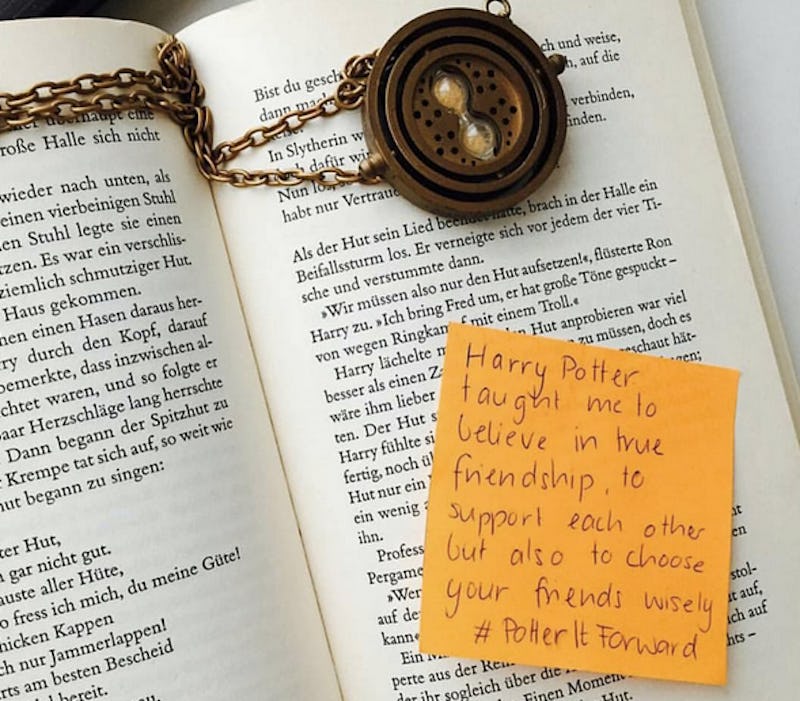 überhaupt eine
roße Halle sich nicht
wieder nach unten, als
einen vierbeinigen Stuhl
en Stuhl legte sie einen
tzen. Es war ein verschlis-
ziemlich schmutziger Hut.
Haus gekommen.
nen einen Hasen daraus her-
ry durch den Kopf, darauf
bemerkte, dass inzwischen al-
chtet waren, und so folgte er
aar Herzschläge lang herrschte
Dann begann der Spitzhut zu
Krempe tat sich auf, so weit wie
hut begann zu singen:
ter Hut,
gar nicht gut.
auste aller Hüte,
o fress ich mich, du meine Güte!
hicken Kappen
ch nur Jammerlappen!
rts am besten Bescheid
bereit.
Bist du gesch
ch und weise,
dann mach
h, auf die
verbinden,
In Slytherin w
finden.
ch dafür wi
Nun los,
habt nur Vertraue
Als der Hut sein Lied beendet hatte, brach in der Halle ein
Beifallssturm los. Er verneigte sich vor jedem der vier Ti-
sche und verstummte dann.
»Wir müssen also nur den Hut aufsetzen!«, flüsterte Ron
Harry zu. »Ich bring Fred um, er hat große Töne gespuckt –
von wegen Ringkampf mit einem Troll.«
Harry lächelte m
en Hut anprobieren war viel
besser als einen Z
zu müssen, doch es
wäre ihm lieber
schaut hät-
ten. Der Hut s
gen;
Harry fühlte si
fertig, noch ü
Hut nur ein
ein wenig
ihn.
Profess
Pergame
»Wer
auf de
kann«
Ein M
perte aus der Reih
der ihr sogleich über die
Einen Moment
Hut.
en
stol-
t auf,
ich auf
hts –
Harry Potter
taught me to
believe in true
friendship, to
support each other
but also to choose
your friends wisely
# PotterItForward